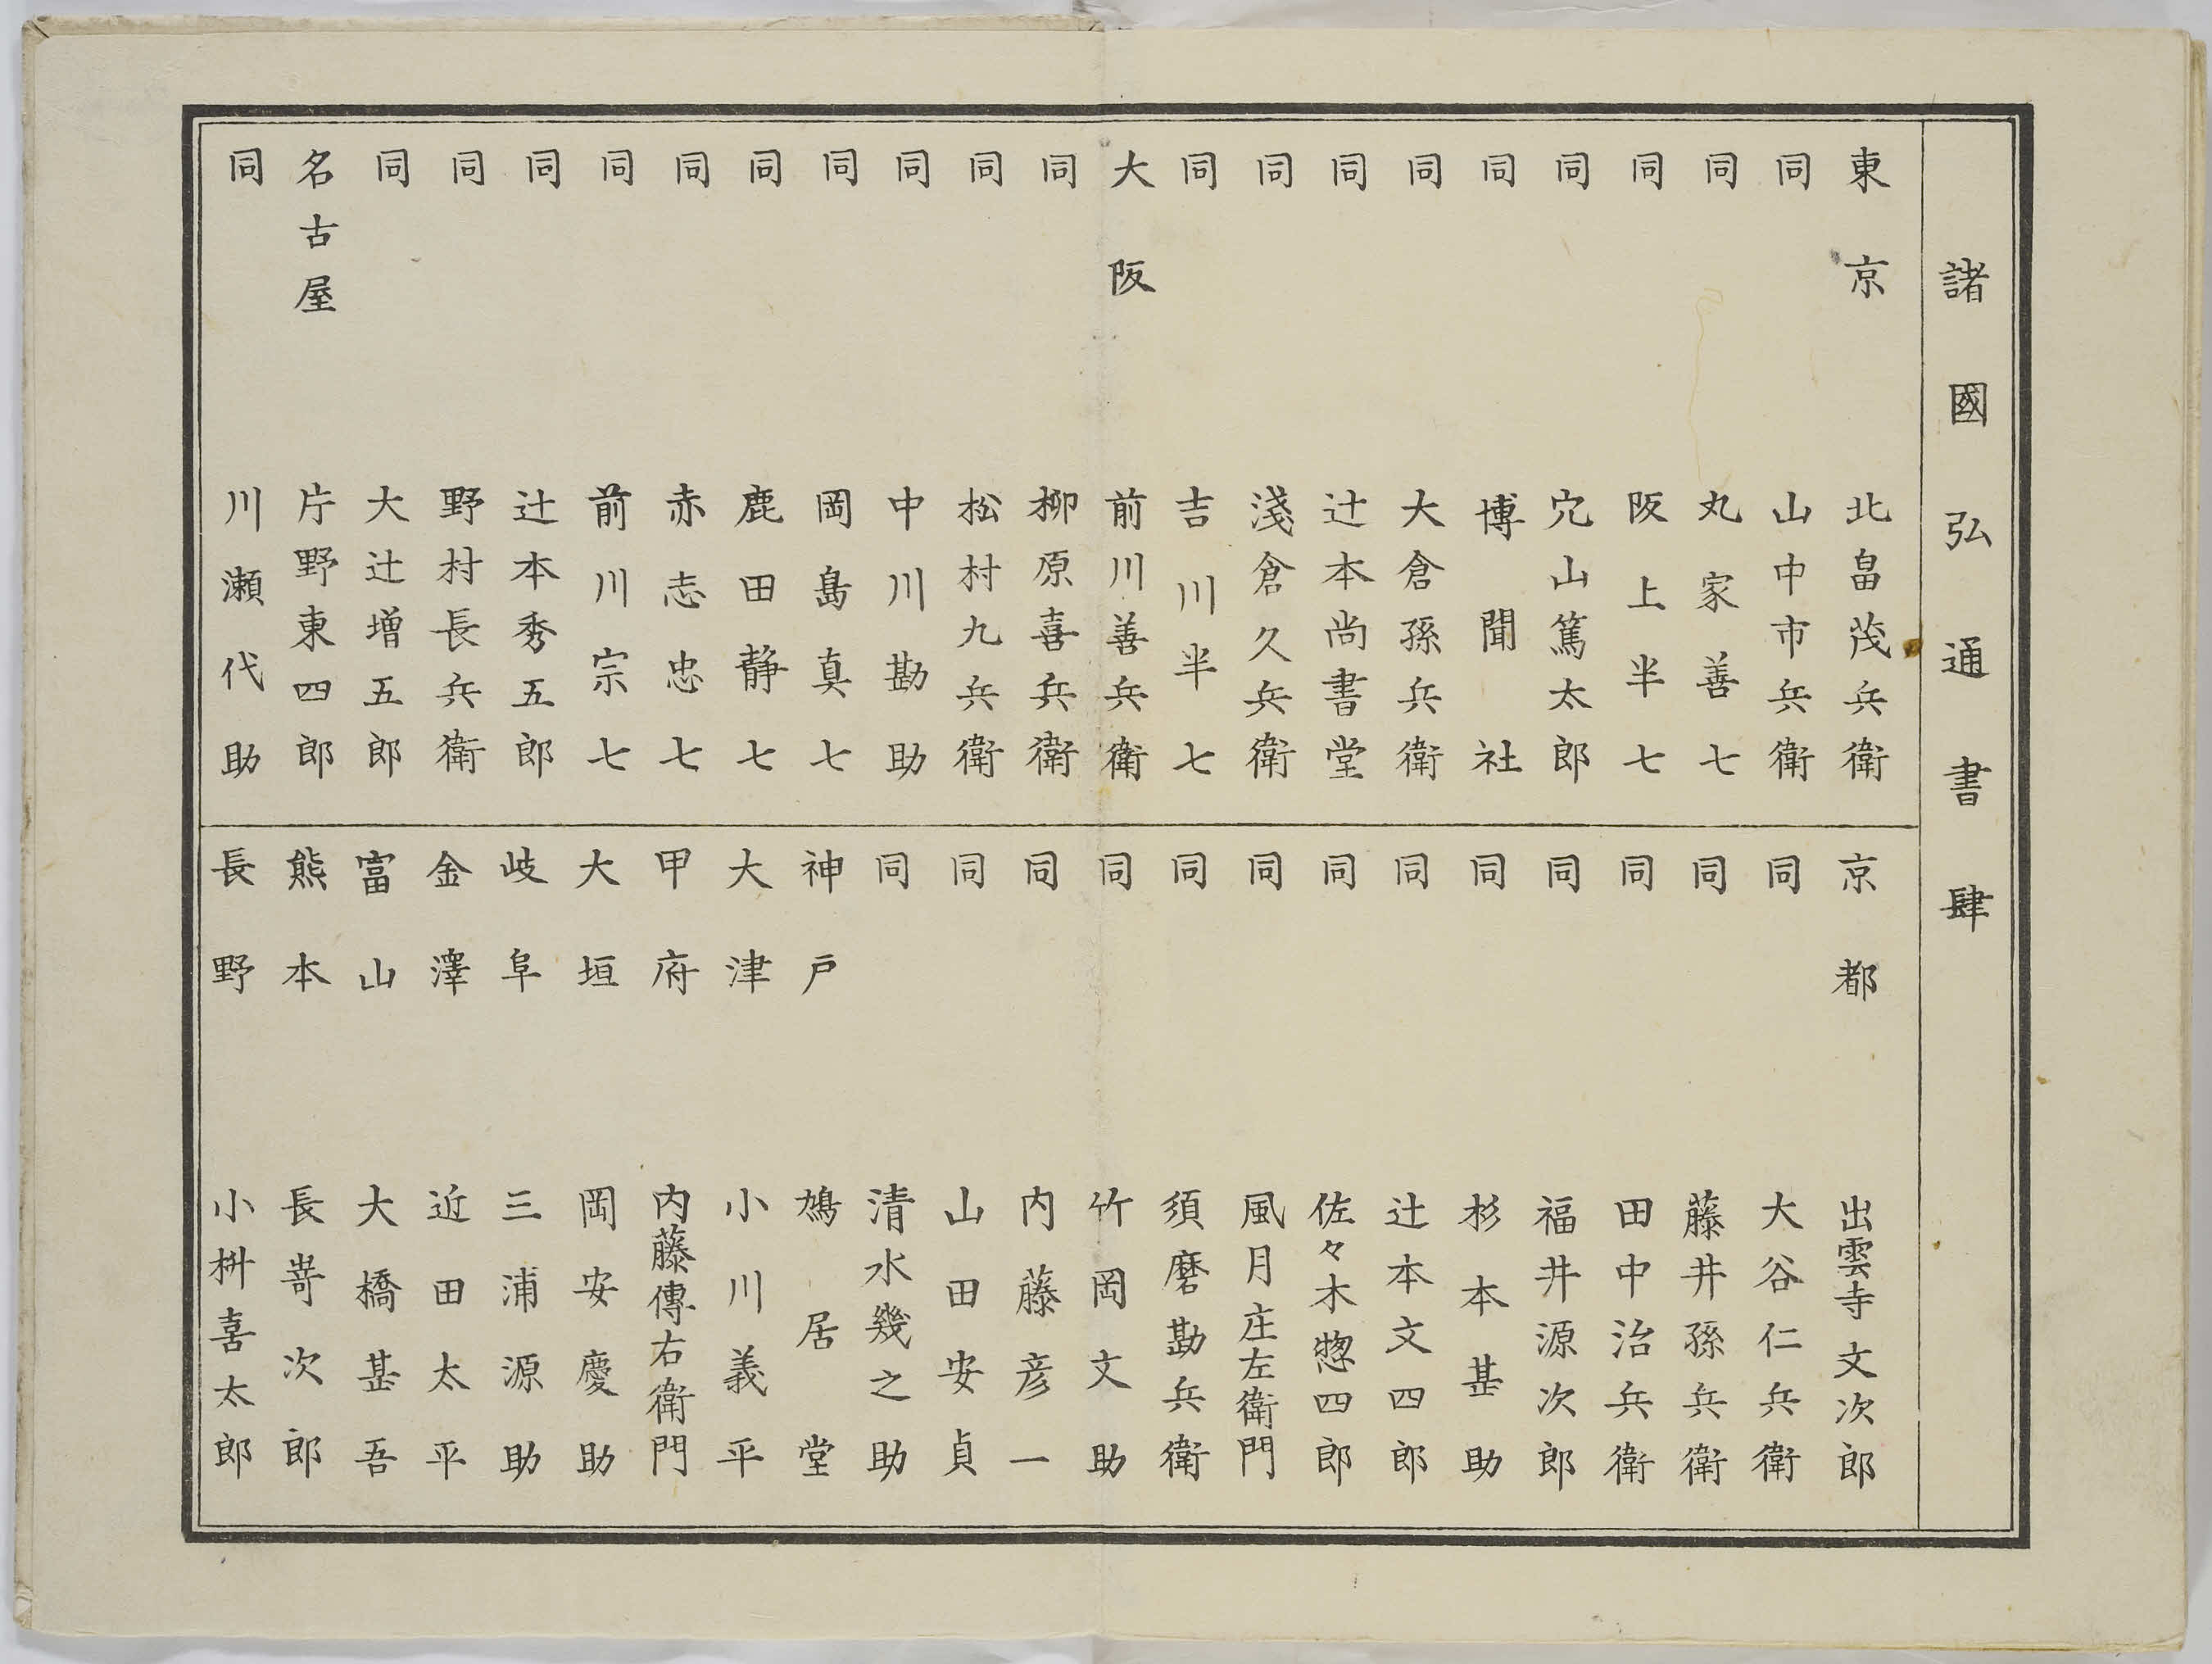 諸國弘通書肆
東京 北畠茂兵衛
同 山中市兵衛
同 丸家善七
同 阪上半七
同 穴山篤太郎
同 博聞社
同 大倉孫兵衛
同 辻本尚書堂
同 淺倉久兵衛
同 吉川半七
大阪 前川善兵衛
同 柳原喜兵衛
同 松村九兵衛
同 中川勘助
同 岡島真七
同 鹿田静七
同 赤志忠七
同 前川宗七
同 辻本秀五郎
同 野村長兵衛
同 大辻増五郎
名古屋 片野東四郎
同 川瀬代助
京都 出雲寺文次郎
同 大谷仁兵衛
同 藤井孫兵衛
同 田中治兵衛
同 福井源次郎
同 杉本甚助
同 辻本文四郎
同 佐々木惣四郎
同 風月庄左衛門
同 須磨勘兵衛
同 竹岡文助
同 内藤彦一
同 山田安貞
同 清水幾之助
神戸 鳩居堂
大津 小川義平
甲府 内藤傳右衛門
大垣 岡安慶助
岐阜 三浦源助
金澤 近田太平
富山 大橋甚吾
熊本 長嵜次郎
長野 小枡喜太郎